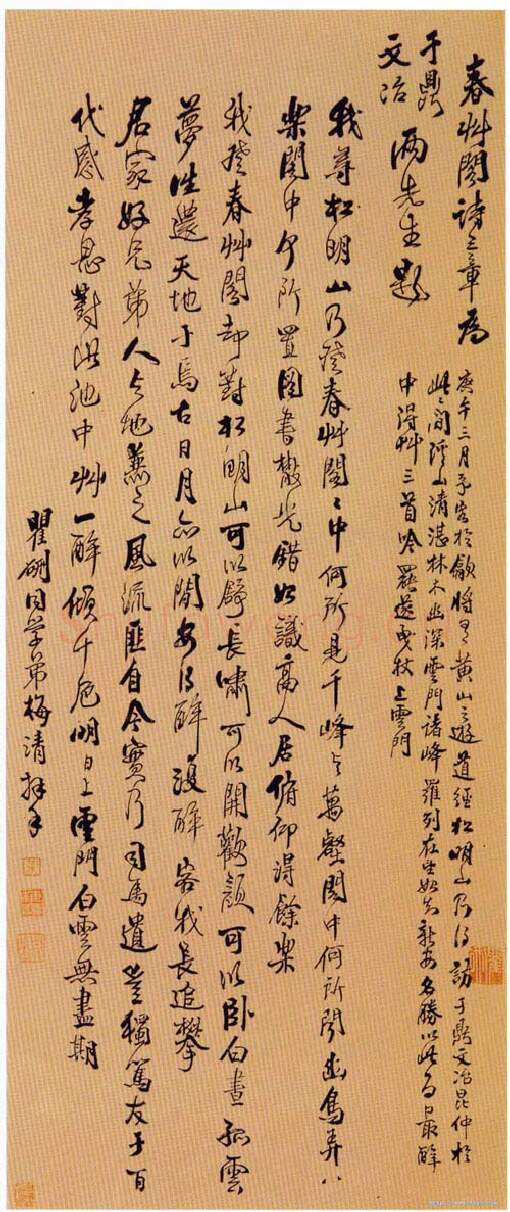 春艸閣詩三章為
于鼎
文冶 兩先生題
庚午三月予客於歙將有黃山之遊道經松明山乃得訪于鼎文冶昆仲於
此之間谿山清湛林木幽深雲門諸峰羅列在坐始知新安名勝以此為最醉
中得艸三首吟罷遂曳杖上雲門
我尋松明山乃登春艸閣〻中何所見千峰與萬壑閣中何所聞幽鳥弄八
樂閣中何所置圖書散光錯如識高人居俯仰得餘樂
我登春艸閣却對松明山可以舒長嘯可以開歡顏可以卧白晝孤雲
夢往還天地于焉古日月亦以閒安得醉復醉容我長追攀
君家好兄弟人與地兼之風流匪自今實乃司馬遺豈獨篤友于百
代感孝思對此池中艸一醉傾千卮明日上雲門白雲無盡期
瞿硎同學弟梅清拜手